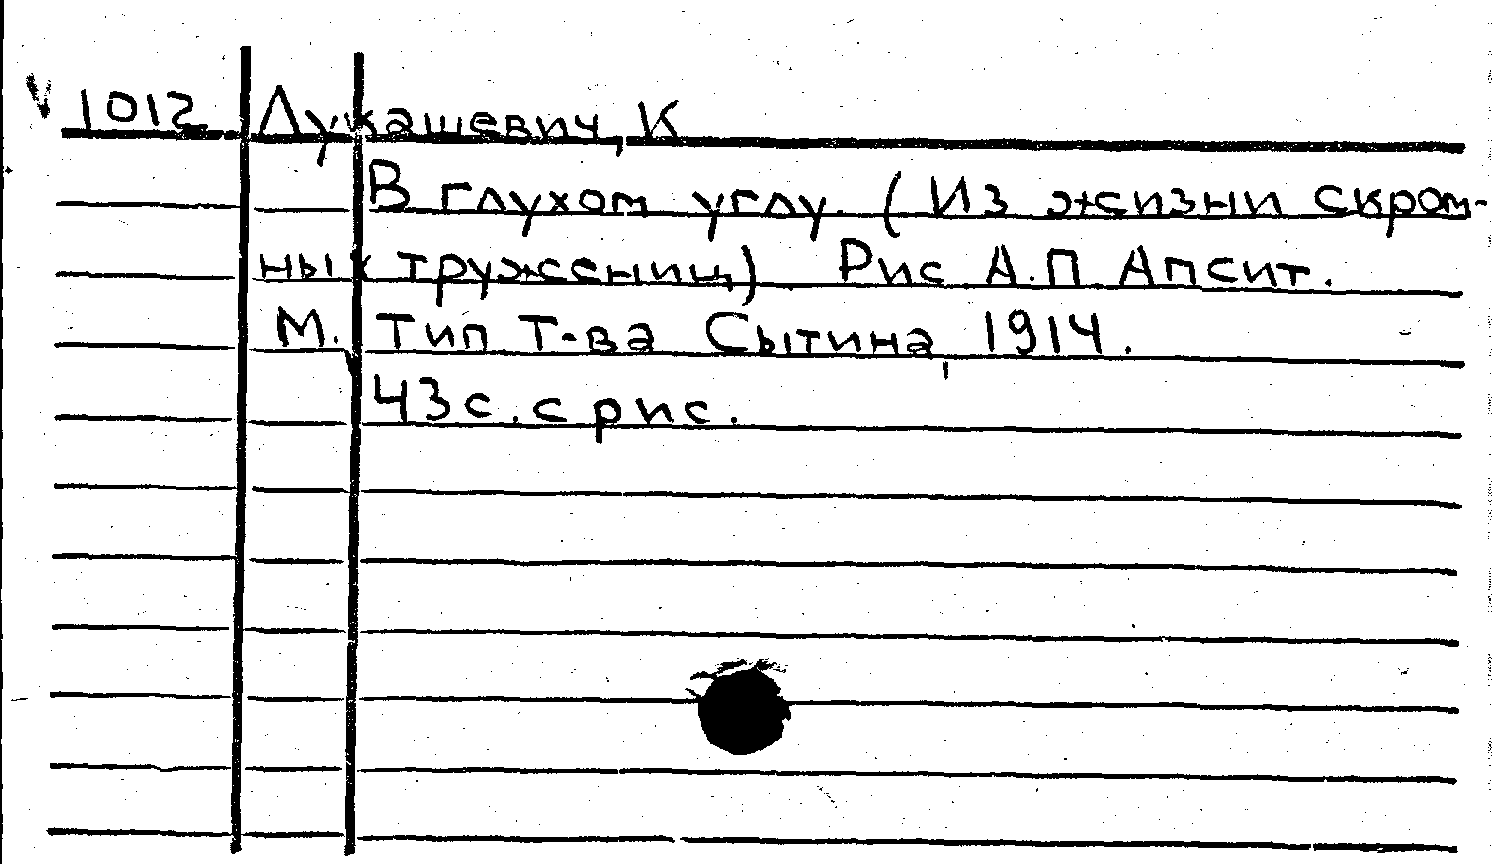 V 1012 Лукашевич, К
В глухом углу. (Из жизни скром-
ных тружениц). Рис А.П. Апсит.
М. Тип Т-ва Сытина, 1914.
43с. с рис.